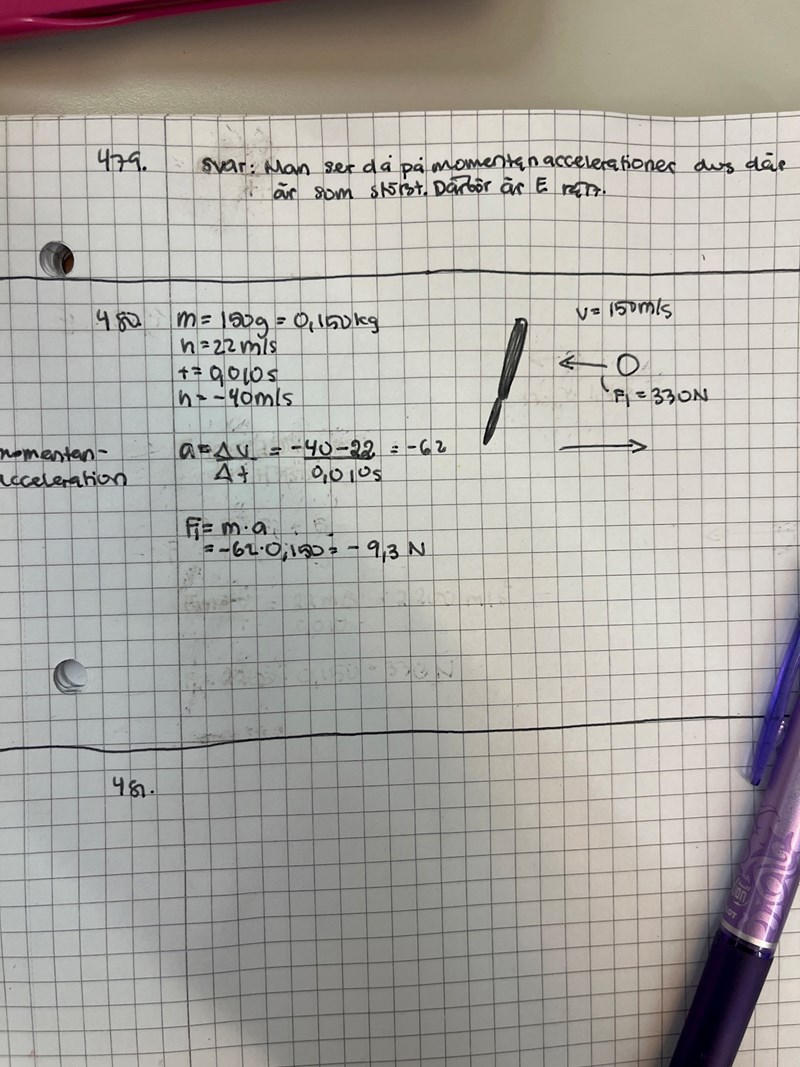 479. svar: Man ser då på momentanaccelerationer dvs där
är som störst. Därför är E rätt.
480 m = 150g = 0,150kg
v = 150m/s
n = 22 m/s
t = 0,010s
n = -40m/s
F₁ = 330N
momentan-
acceleration
a = Δv = -40-22 = -62
Δt 0,010s
F₁ = m·a
= -62·0,150 = -9,3 N
481.